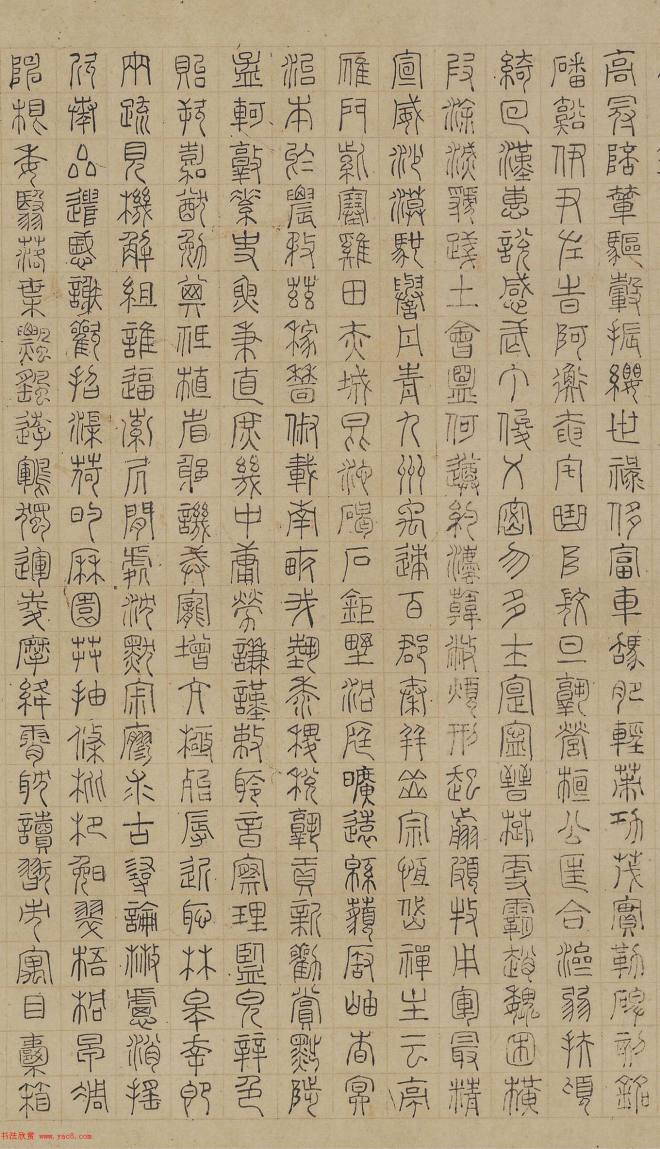 高冠陪輦驅轂振纓世祿侈富車駕肥輕策功茂實勒碑刻銘
磻谿伊尹佐時阿衡奄宅曲阜微旦孰營桓公匡合濟弱扶傾
綺回漢惠說感武丁俊乂密勿多士寔寧晉楚更霸趙魏困橫
假途滅虢踐土會盟何遵約法韓弊煩刑起翦頗牧用軍最精
宣威沙漠馳譽丹青九州禹跡百郡秦并嶽宗恆岱禪主云亭
雁門紫塞雞田赤城昆池碣石鉅野洞庭曠遠緜邈巖岫杳冥
治本於農務茲稼穡俶載南畝我藝黍稷稅熟貢新勸賞黜陟
孟軻敦素史魚秉直庶幾中庸勞謙謹敕聆音察理監皃辨色
貽厥嘉猷勉其祗植省躬譏誡寵增抗極殆辱近恥林皋幸即
兩疏見機解組誰逼索居閒處沈默寂寥求古尋論散慮逍搖
欣奏累遣慼謝歡招渠荷的歷園莽抽條枇杷晚翠梧桐早凋
陳根委翳落葉飄颻遊鵾獨運凌摩絳霄耽讀翫市寓目囊箱
书法欣赏 www.yac8.com